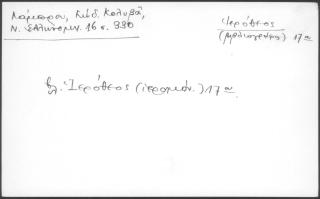 Λάμπρου, Κώδ. Κολυβᾶ,
Ν. Ἑλληνομν. 16 σ. 330
Ἱερόθεος
(βιβλιογράφος) 17ος
βλ. Ἱερόθεος (ἱερομόν.) 17ος